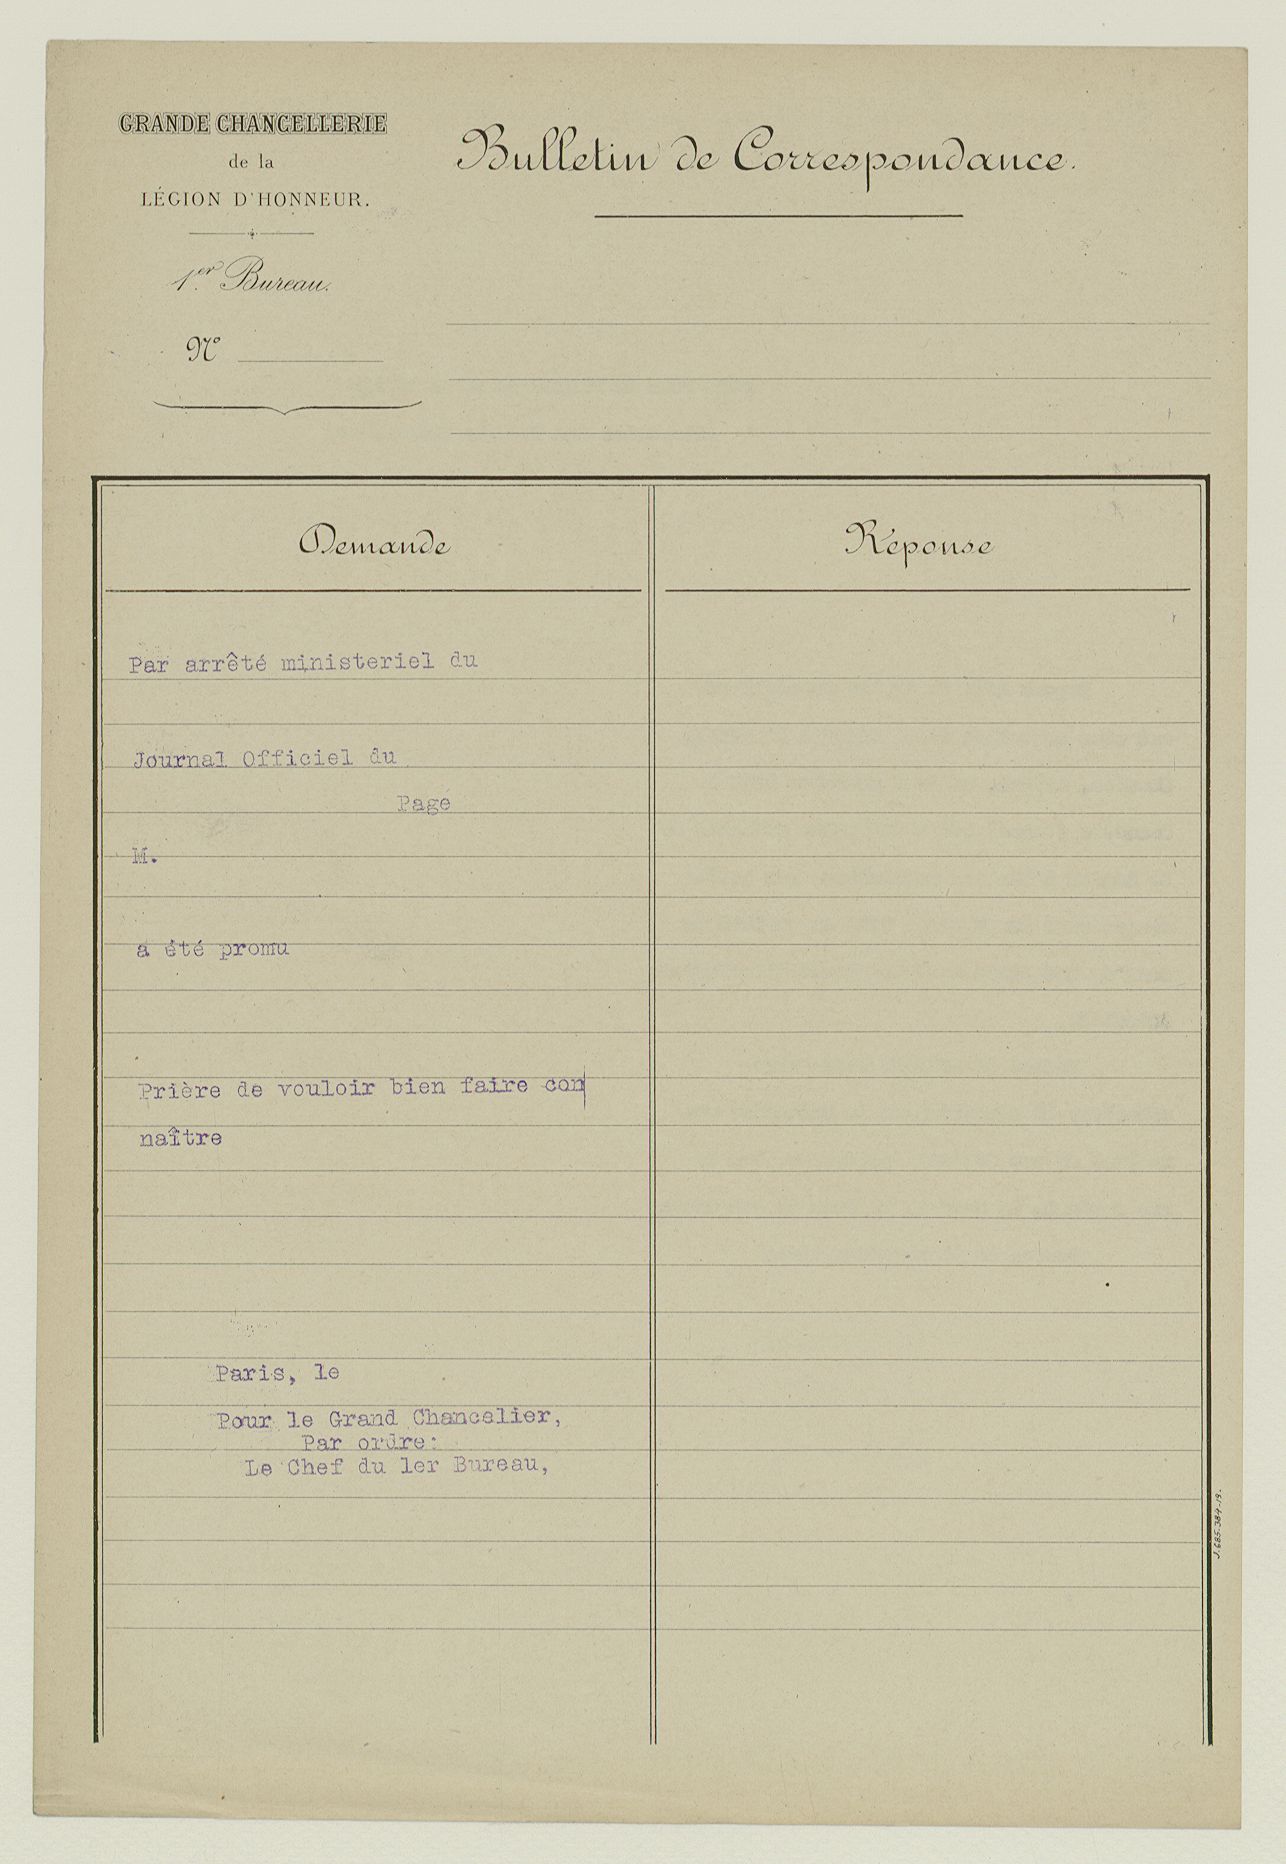 GRANDE CHANCELLERIE
de la
LÉGION D'HONNEUR.
1er. Bureau.
No
Bulletin de Correspondance.
Demande
Par arrêté ministeriel du
Journal Officiel du
Page
M.
a été promu
Prière de vouloir bien faire con
naître
Paris, le
Pour le Grand Chancelier,
Par ordre:
Le Chef du 1er Bureau,
Réponse
J.685.384-19.